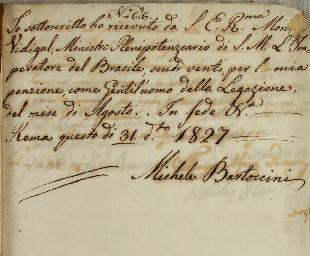 N.° 66.
Io sottoscritto ho ricevuto da S. E. R.ma Mon.r
Vidigal, Ministro Plenipotenziario di S. M. L'Im=
peratore del Brasile, scudi venti, per la mia
penzione, come Gentil'uomo della Legazione,
del mese di Agosto. In fede &.a
Roma questo dì 31 d.to 1827
Michele Bartoccini